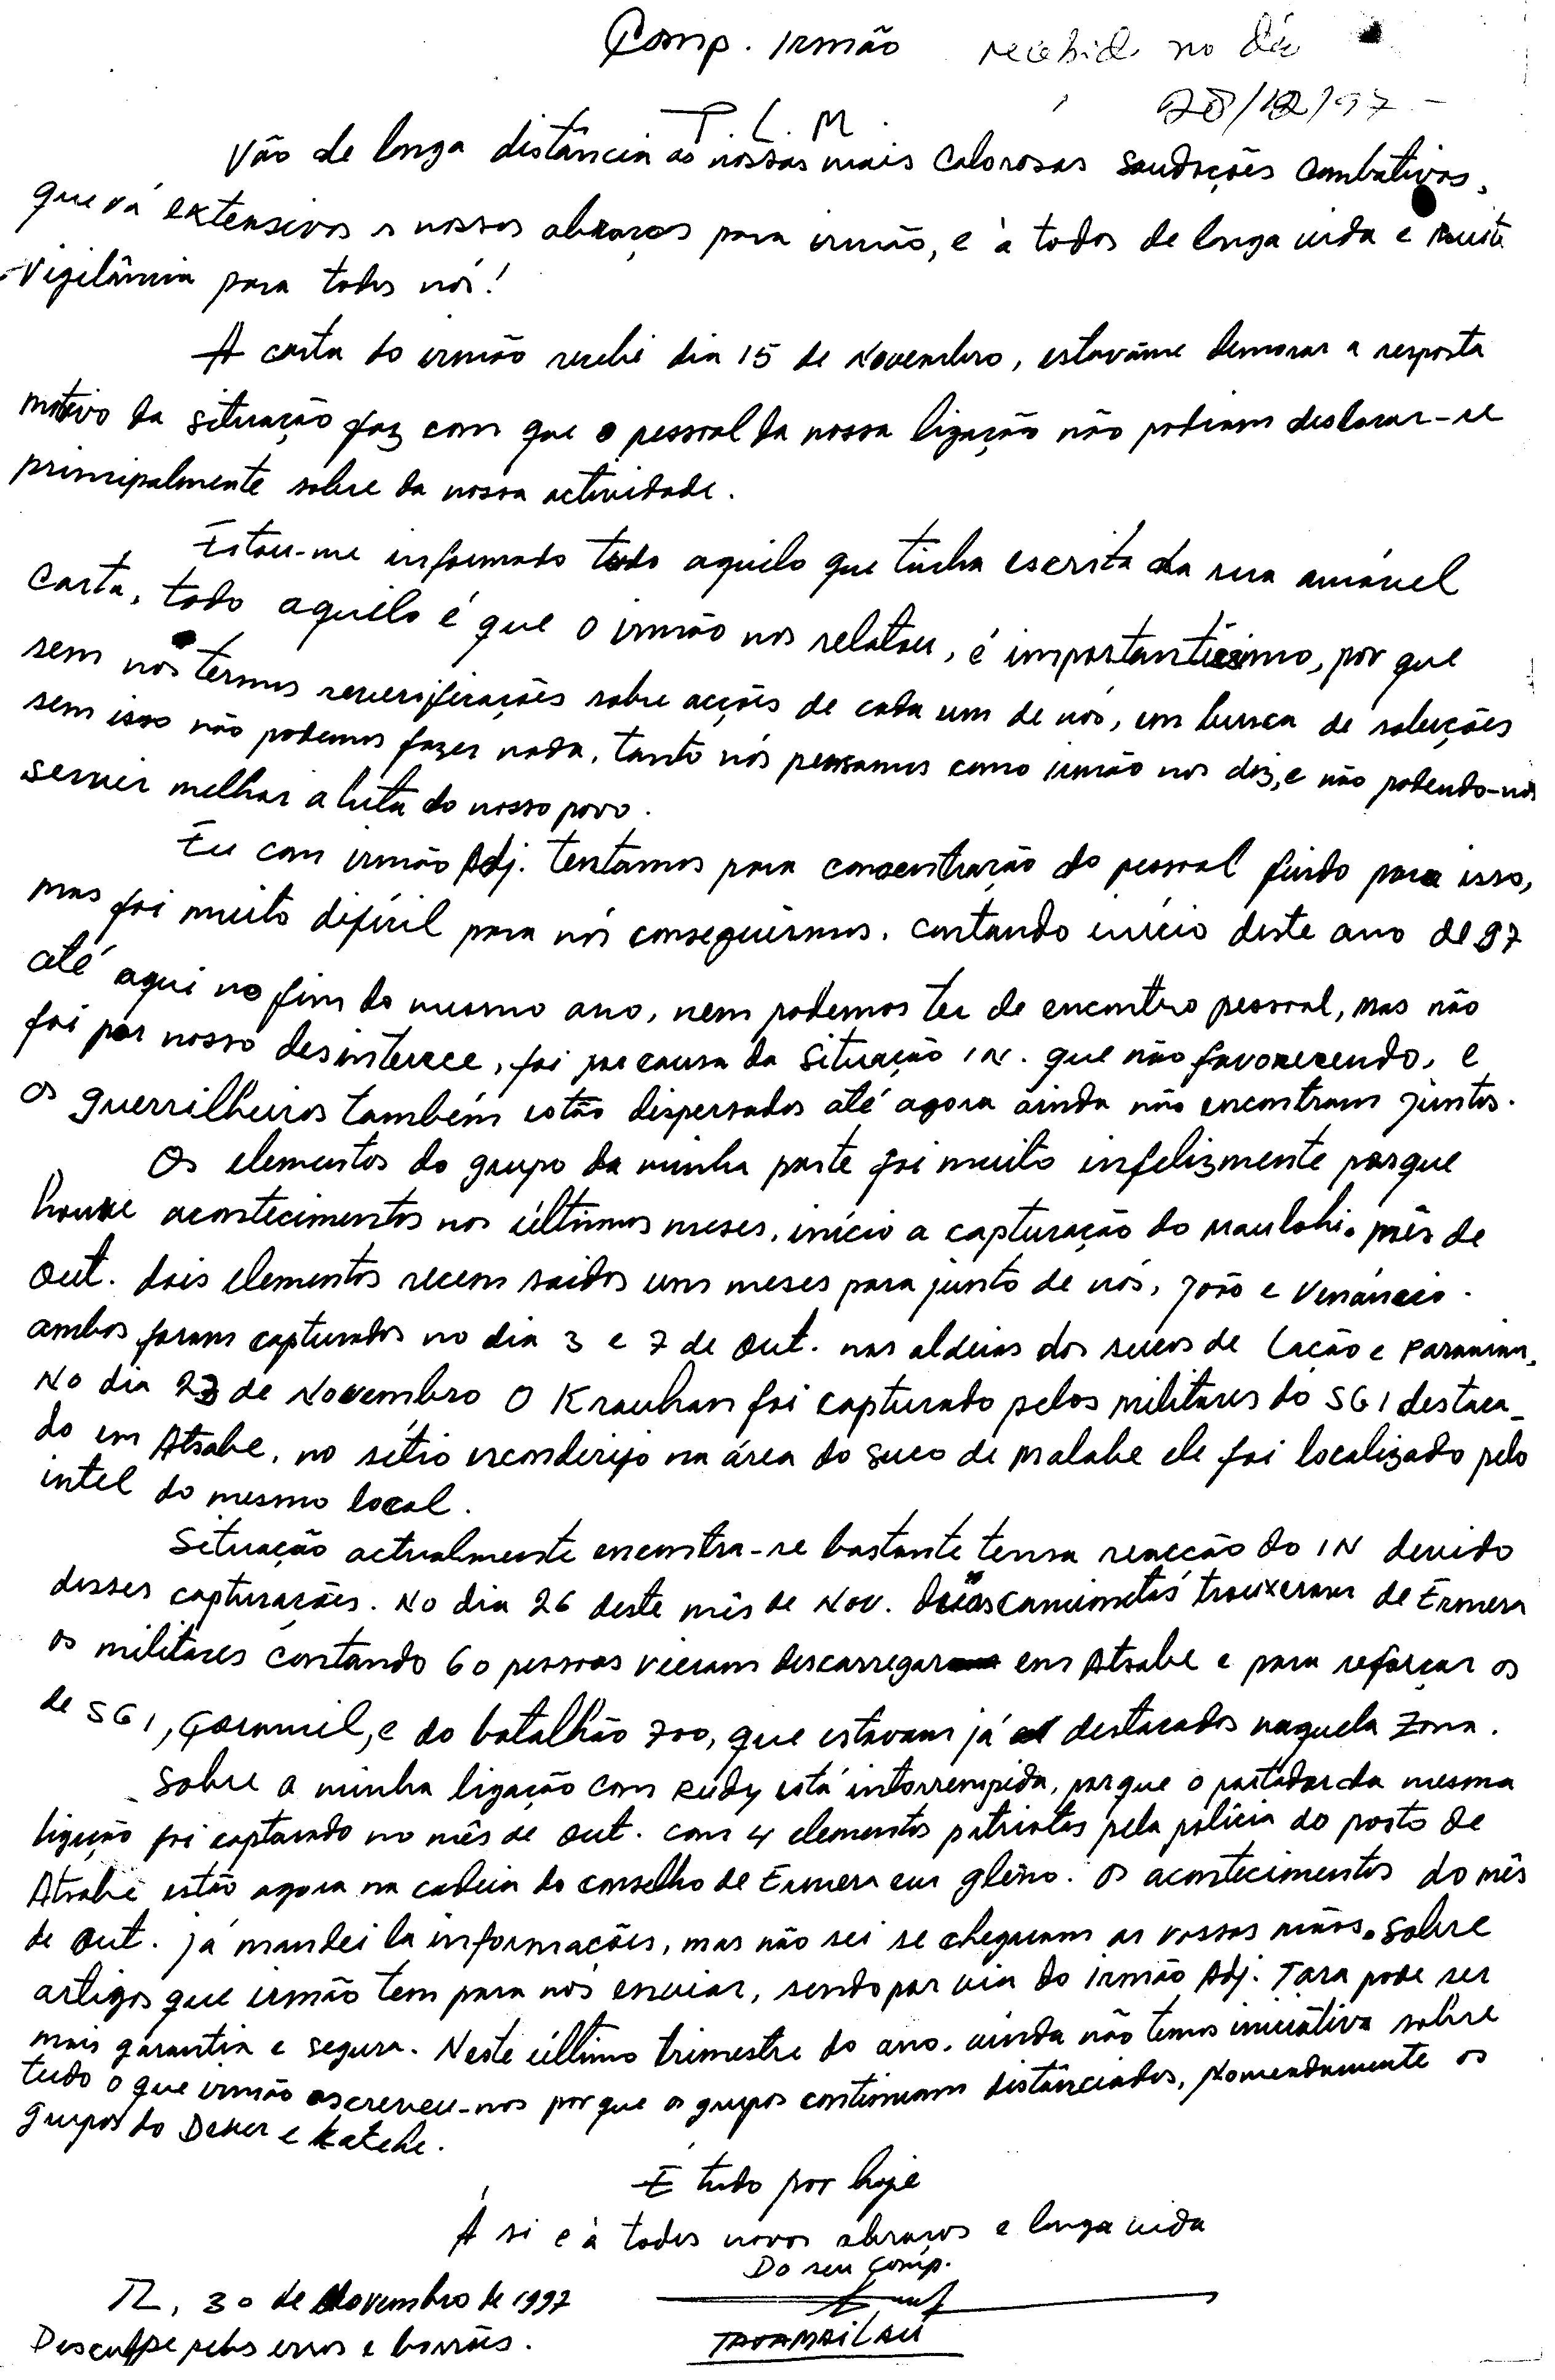 Comp. Irmão recebid no dia
28/12/97 -
T. L. M.
Vão de longa distância as nossas mais calorosas saudações combativas,
que vá extensivos a nossos abraços para irmão, e à todos de longa vida e muita
vigilância para todos nós!
A carta do irmão recebi dia 15 de Novembro, estavâme demorar a resposta
motivo da situação faz com que o pessoal da nossa ligação não podiam deslocar-se
principalmente sobre da nossa actividade.
Estou-me informado todo aquilo que tinha escrita da sua amável
carta, todo aquilo é que o irmão nos relatou, é importantissimo, por que
sem nós termos reverificações sobre acções de cada um de nós, em busca de soluções
sem isso não podemos fazer nada, tanto nós pensamos como irmão nos diz, e não podendo-nos
servir melhor a luta do nosso povo.
Eu com irmão Adj. tentamos para consentração do pessoal para isso,
mas foi muito difícil para nós conseguirmos. contando início deste ano de 97
até aqui no fim do mesmo ano, nem podemos ter de encontro pessoal, mas não
foi por nosso desinterece, foi por causa da situação IN. que não favorecendo, e
os guerrilheiros também estão dispersados até agora ainda não encontram juntos.
Os elementos do grupo da minha parte foi muito infelizmente porque
houve acontecimentos nos últimos meses, início a capturação do Maulohi. mês de
Out. dois elementos recem saidos uns meses para junto de nós, João e Venâncio.
ambos foram capturados no dia 3 e 7 de Out. nas aldeias dos sucos de Lacão e
No dia 23 de Novembro o Krauhan foi capturado pelos militares do SGI destaca-
do em Atsabe, no sítio esconderijo na área do suco de Malabe ele foi localizado pelo
intel do mesmo local.
Situação actualmente encontra-se bastante tensa reacção do IN devido
desses capturações. No dia 26 deste mês de Nov. duas camionetas trouxeram de Ermera
os militares contando 60 pessoas vieram descarregar em Atsabe e para reforçar os
de SGI, Coramil, e do batalhão 700, que estavam já destacados naquela zona.
Sobre a minha ligação com Rudy está intorrempida, porque o portador da mesma
ligação foi capturado no mês de Out. com 4 elementos patriotas pela polícia do posto de
Atsabe estão agora na cadeia do conselho de Ermera em gleno. Os acontecimentos do mês
de Out. já mandei la informações, mas não sei se chegaram as vossas mãos. Sobre
artigos que irmão tem para nós enviar, sendo por via do irmão Adj. Tara pode ser
mais garantia e segura. Neste último trimestre do ano, ainda não temos iniciativa sobre
tudo o que irmão escreveu-nos porque os grupos continuam distânciados, Nomeadamente os
grupos do Deker e Katehe.
É tudo por hoje
À si e à todos novos abraços e longa vida
Do seu Comp.
TL, 30 de Novembro de 1997
Desculpe pelos erros e borrões.
TAVAMAILAU